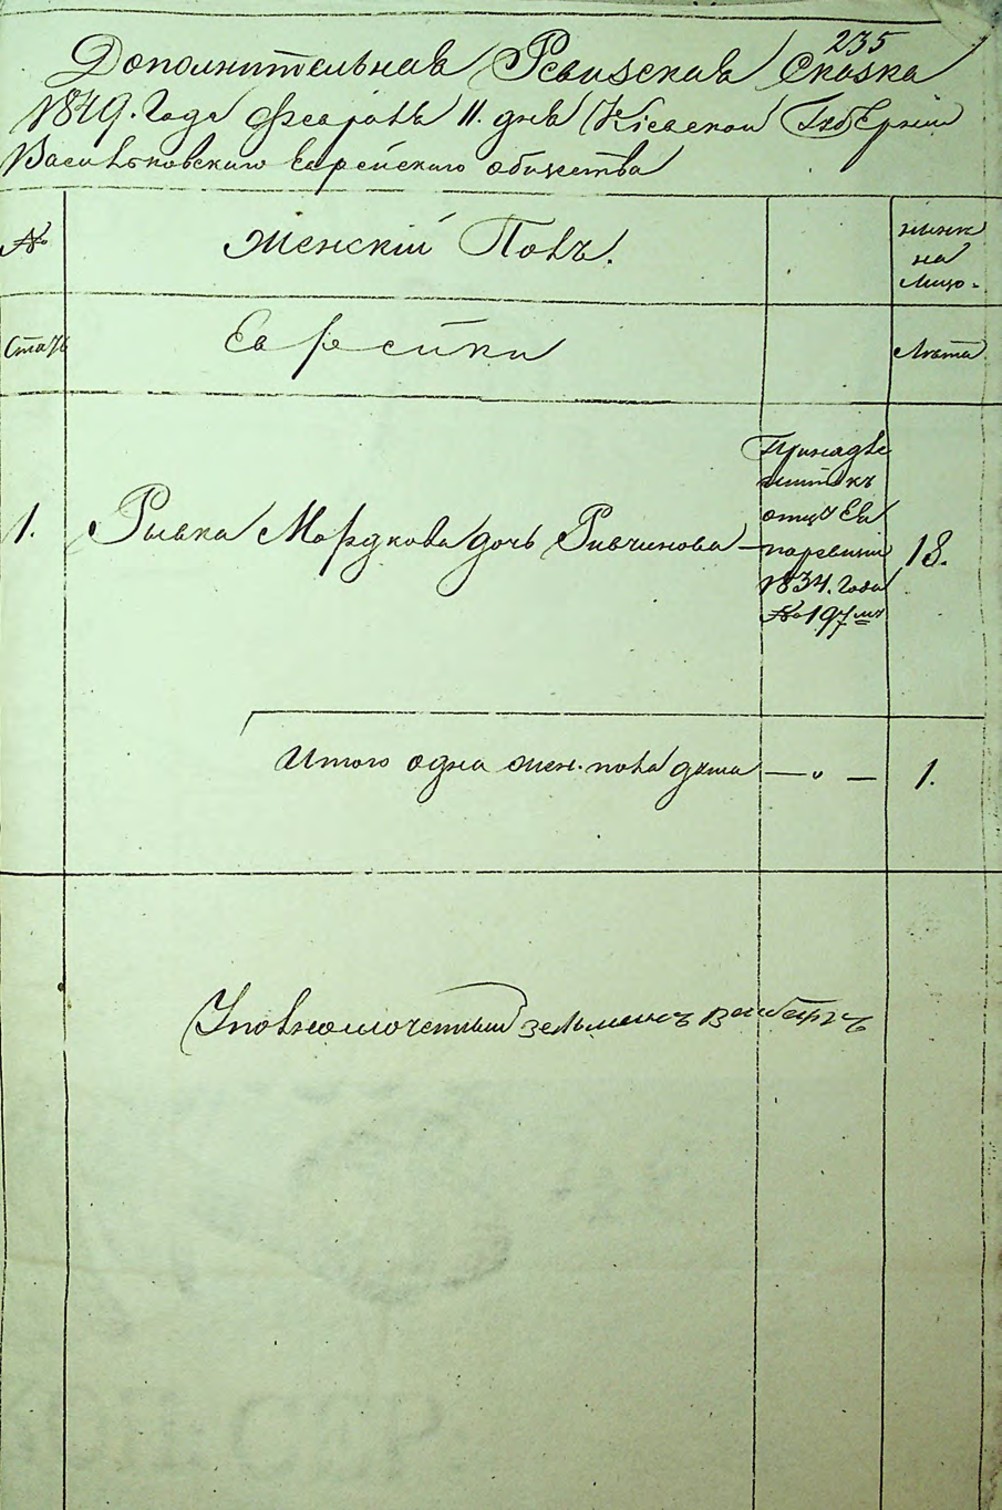 235
Дополнительная Ревизская Сказка
1849. Года Февраля 11. дня Кіевской Губерніи
Васильковского Еврейского общества
№ Женскій Полъ. ныне на лицо.
Статьи Еврейки Лѣта
1. Рывка Мордкова дочь Ривчинова — 18.
Принадле
житъ къ
отцу Ея
поревизіи
1834. Года
№ 197
Итого одна жен. пола душа — „ — 1.
Уполномоченный Зельманъ Вайбергъ